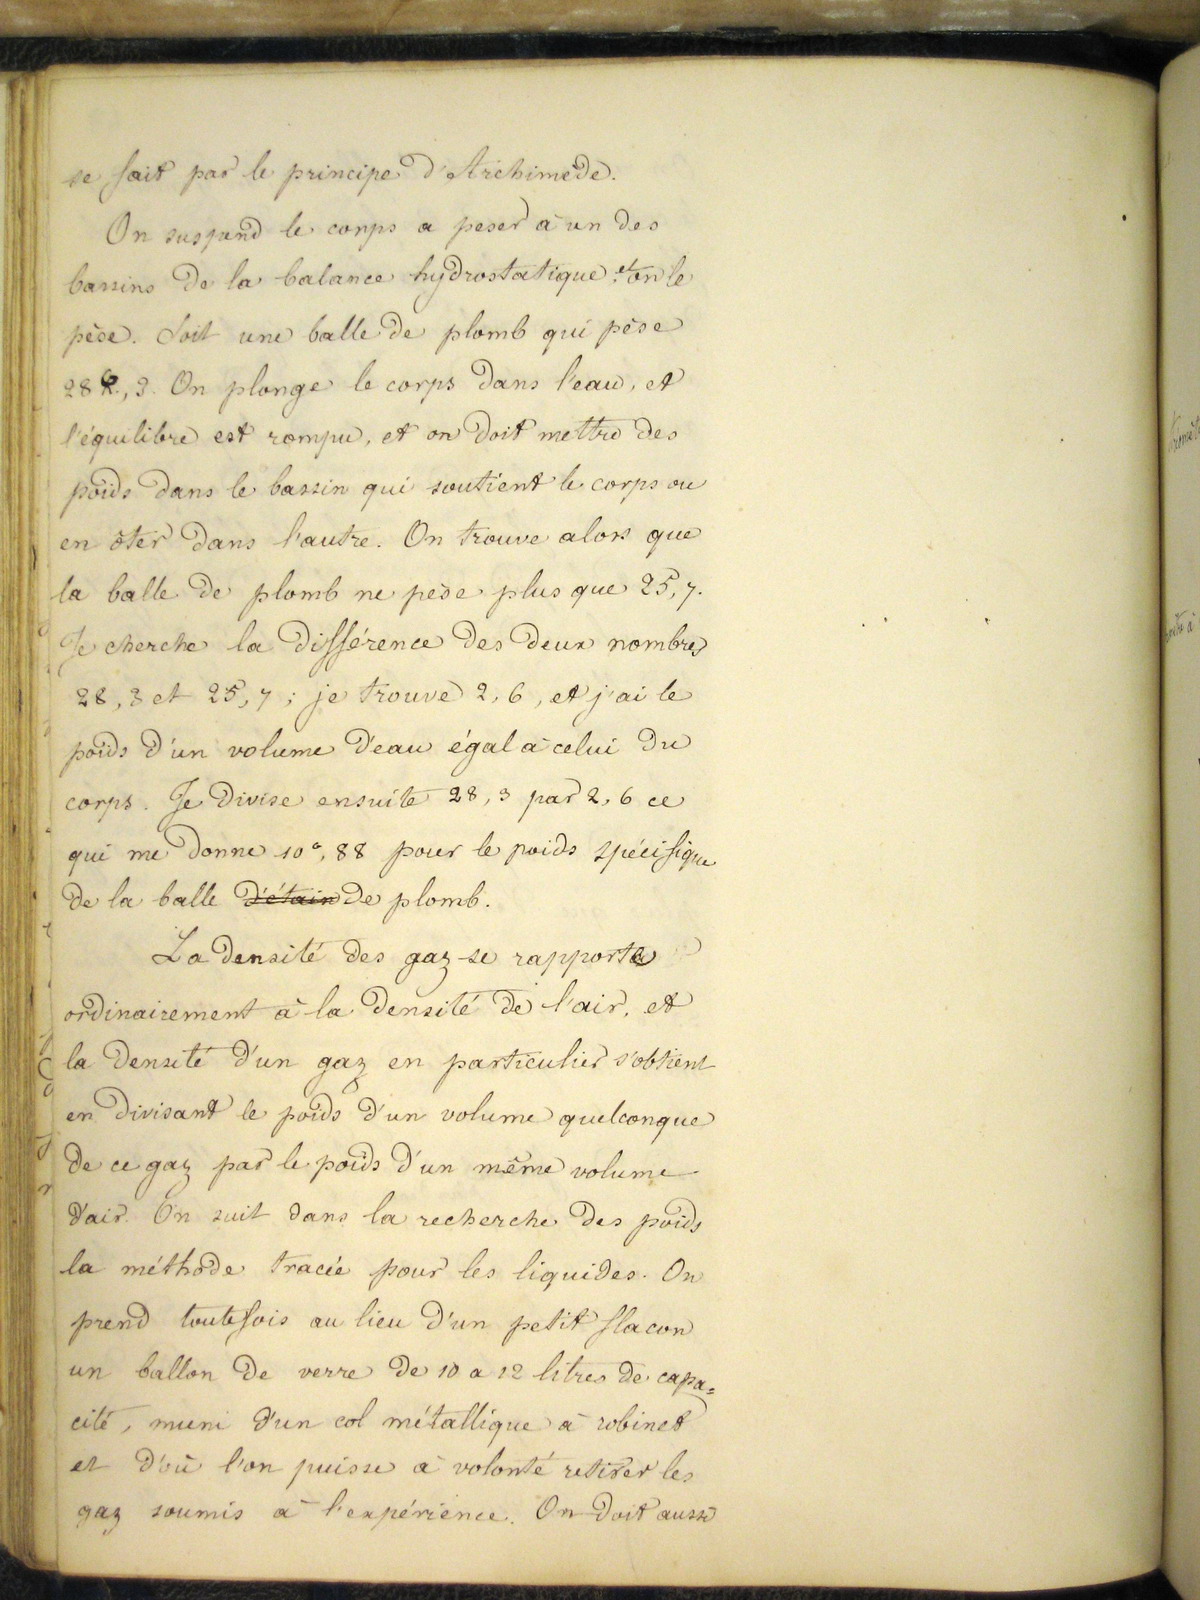 se fait par le principe d'Archimède.
On suspend le corps a peser à un des
bassins de la balance hydrostatique et on le
pèse. Soit une balle de plomb qui pèse
28 G., 3. On plonge le corps dans l'eau, et
l'équilibre est rompu, et on doit mettre des
poids dans le bassin qui soutient le corps ou
en ôter dans l'autre. On trouve alors que
la balle de plomb ne pèse plus que 25,7.
Je cherche la différence des deux nombres
28,3 et 25,7; je trouve 2,6, et j'ai le
poids d'un volume d'eau égal à celui du
corps. Je divise ensuite 28,3 par 2,6 ce
qui me donne 10 G, 88 pour le poids spécifique
de la balle d'étain de plomb.
La densité des gaz se rapporte
ordinairement à la densité de l'air, et
la densité d'un gaz en particulier s'obtient
en divisant le poids d'un volume quelconque
de ce gaz par le poids d'un même volume
d'air. On suit dans la recherche des poids
la méthode tracée pour les liquides. On
prend toutefois au lieu d'un petit flacon
un ballon de verre de 10 a 12 litres de capa=
cité, muni d'un col métallique à robinet
et d'où l'on puisse à volonté retirer les
gaz soumis à l'expérience. On doit aussi